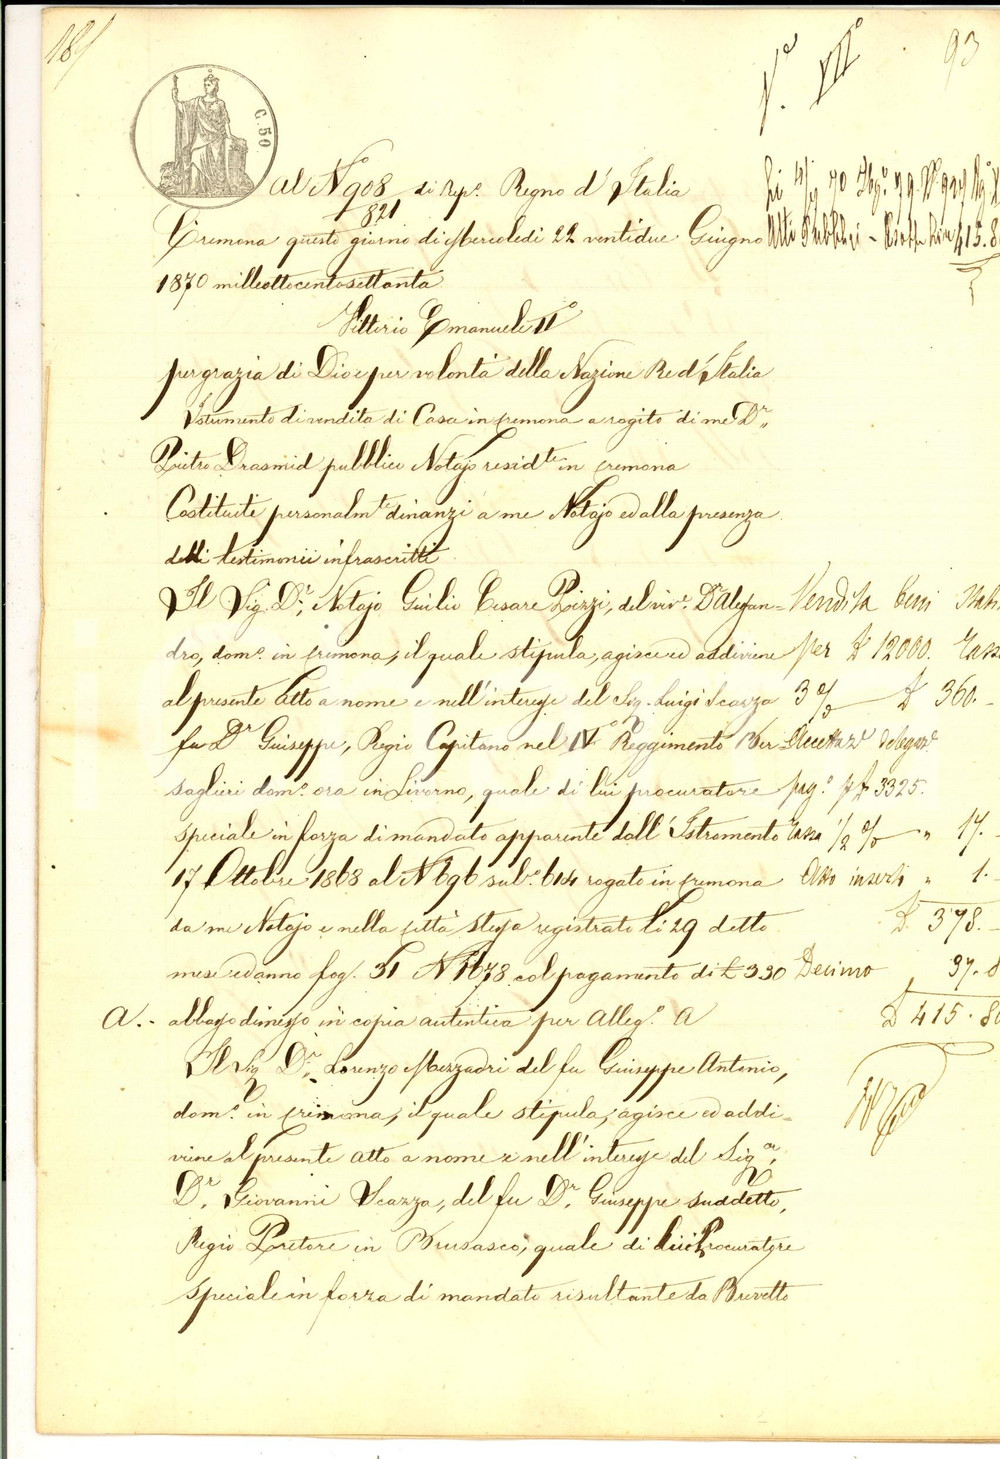 18/
N.e VII°
93
C. 50
Al N 908 di Rep.o Regno d'Italia
821
Cremona questo giorno di Mercoledi 22 ventidue Giugno
1870 milleottocentosettanta
Li 4/ 70
Atti Pubblici - 415.80
Vittorio Emanuele II°
per grazia di Dio e per volontà della Nazione Re d'Italia
Istrumento di vendita di Casa in Cremona a rogito di me Dr.
Pietro Drasmid pubblico Notajo residte in Cremona
Costituiti personalmte dinanzi a me Notajo ed alla presenza
delli testimonii infrascritti
Il Sig. Dr. Notajo Giulio Cesare Pizzi, del viv.e Dr Alessan=
dro, dom.o in Cremona, il quale stipula, agisce ed addiviene
al presente Atto a nome e nell'interesse del Sig. Luigi Scazza
fu Dr Giuseppe, Regio Capitano nel IV° Reggimento Ber=
saglieri dom.o ora in Livorno, quale di lui procuratore
speciale in forza di mandato apparente dall'Istromento
17 Ottobre 1868 al N 696 sub.o 614 rogato in Cremona
da me Notajo e nella città stessa registrato li 29 detto
mese ed anno fog. 31 N 1678 col pagamento di £ 3 30
A.- abbasso dimesso in copia autentica per Alleg.o A
Il Sig. Dr. Lorenzo Mezzadri del fu Giuseppe Antonio,
dom.o in Cremona, il quale stipula, agisce ed addi=
viene al presente atto a nome e nell'interesse del Sigr.
Dr. Giovanni Scazza, del fu Dr. Giuseppe suddetto,
Regio Pretore in Brusasco, quale di lui Procuratore
speciale in forza di mandato risultante da Brevetto
Vendita beni Stab
per £ 12000. Tassa
3 % £ 360.-
Accettaz.e delegaz.e
pag.o £ 3325.
Tassa 1/2 % " 17.-
Atto inserto " 1.-
£ 378.-
Decimo 37.8
£ 415.80